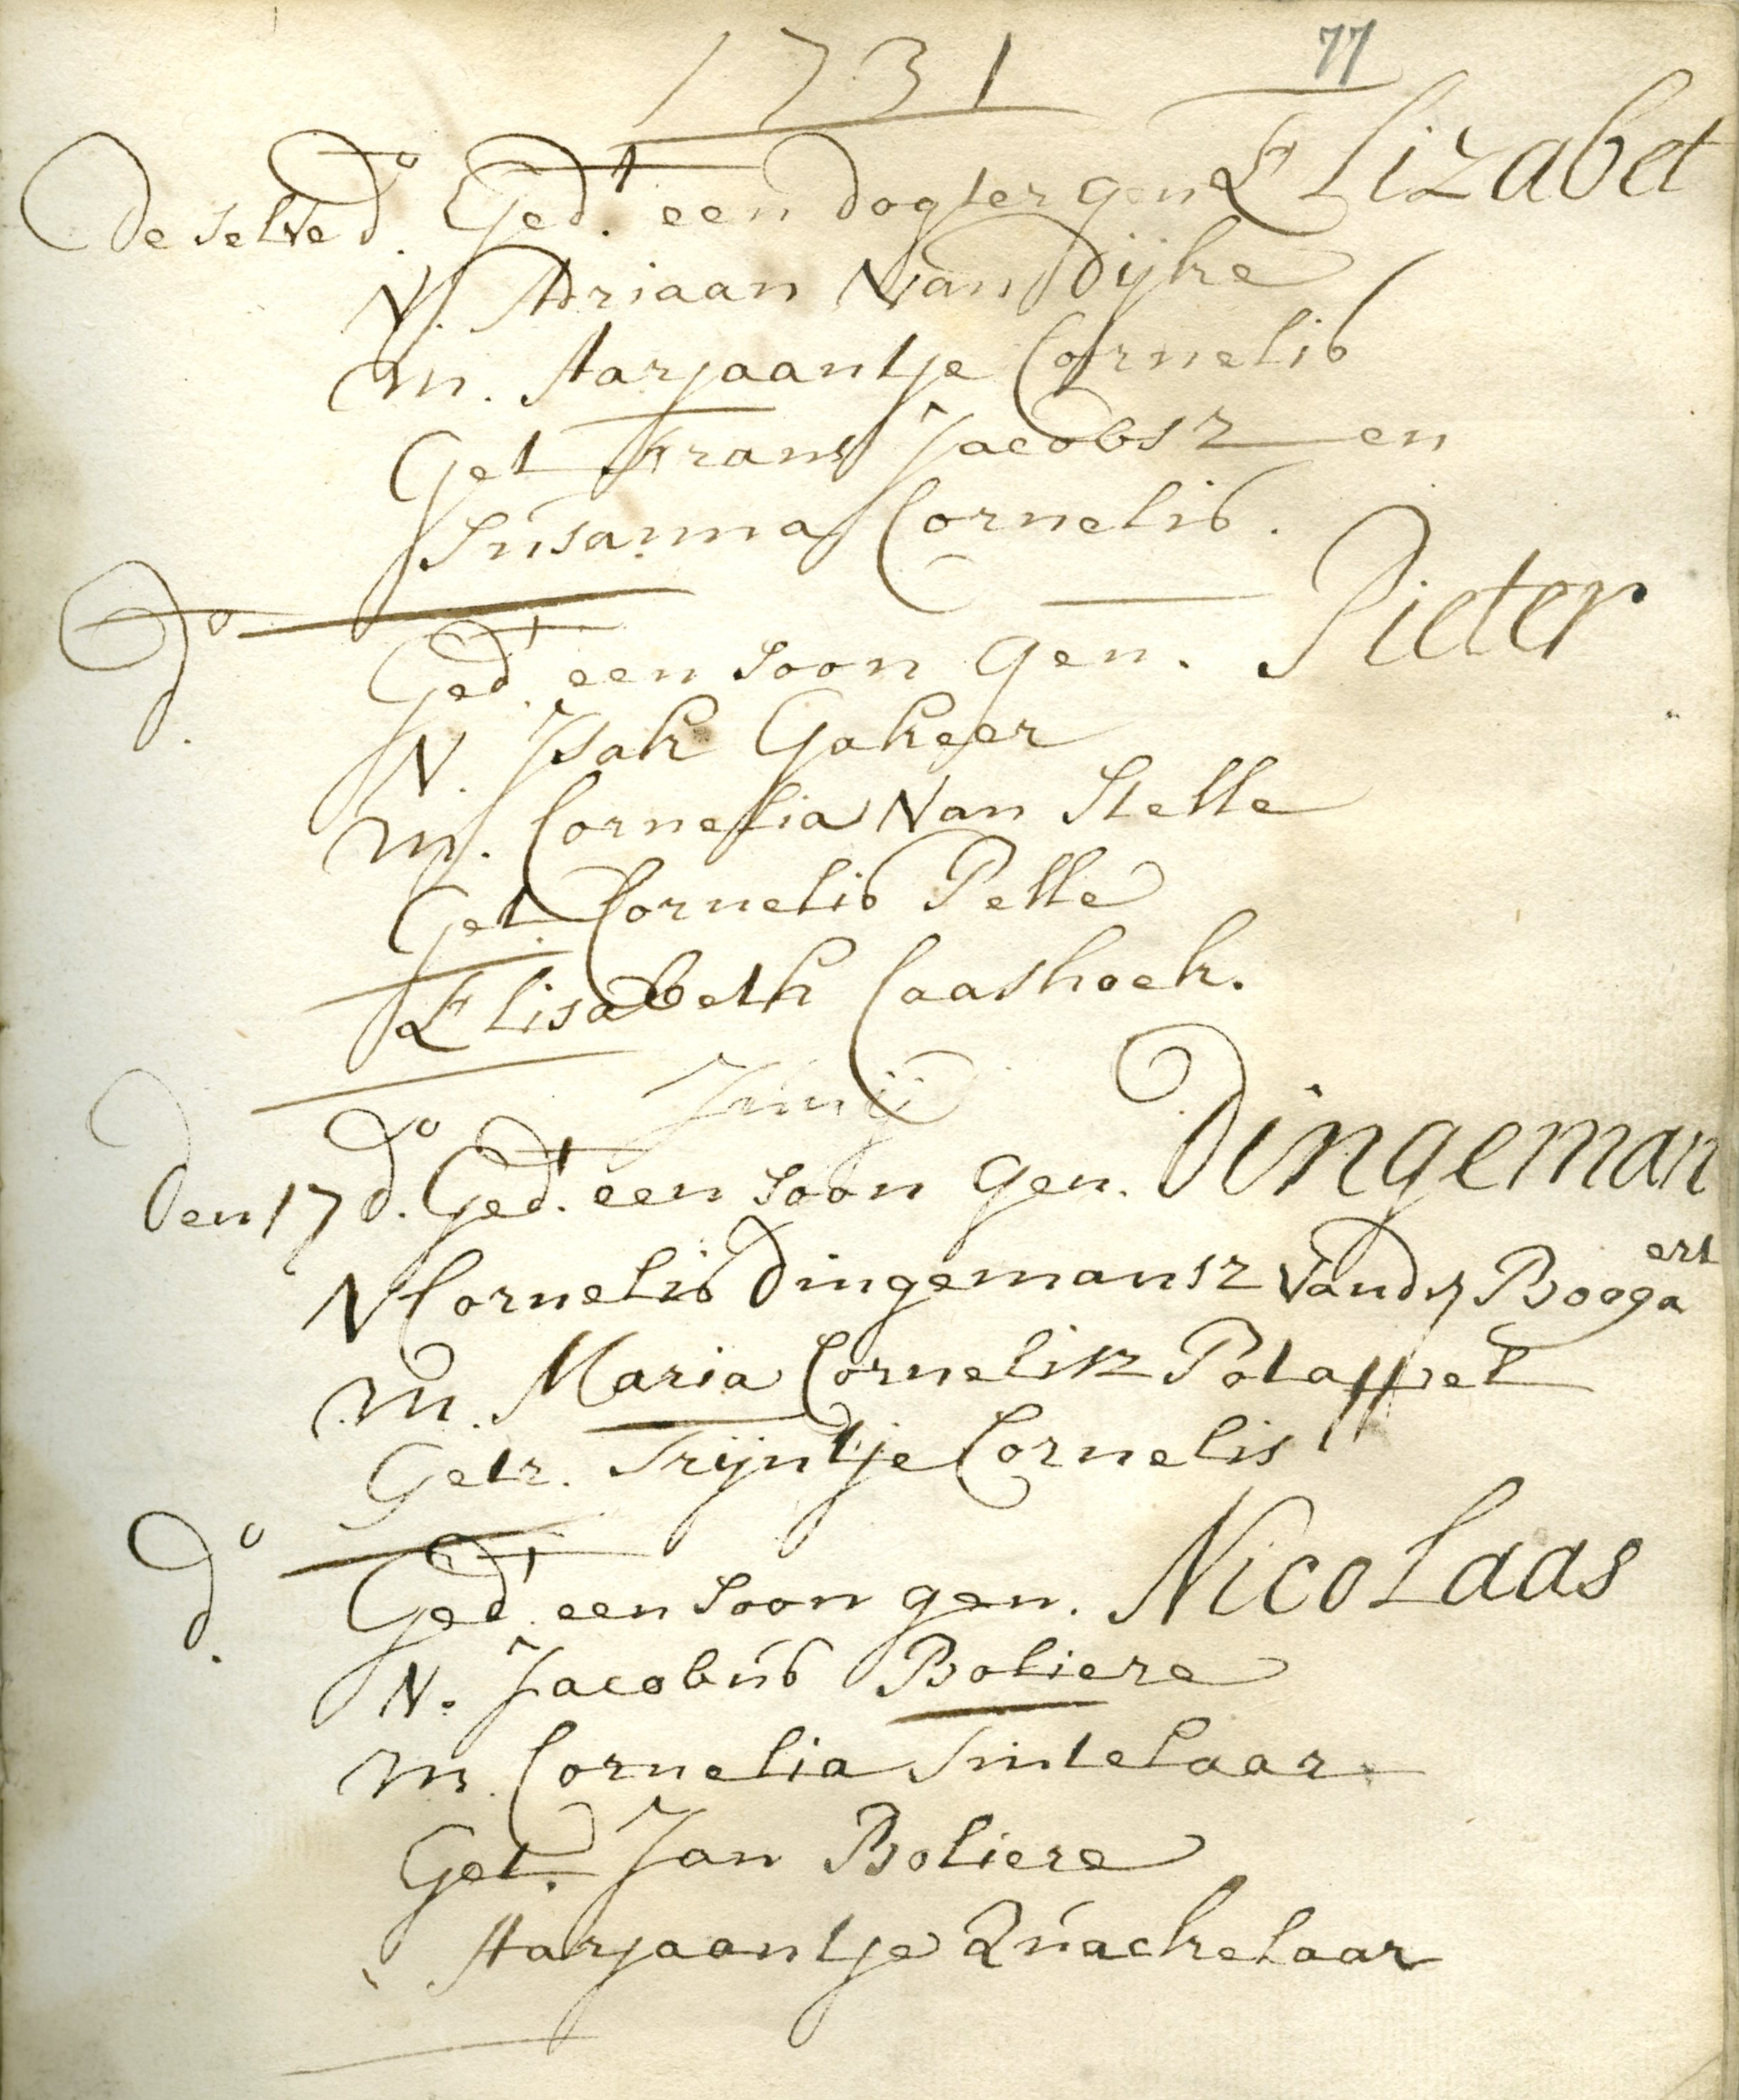 1731
77
De selve do. Gedt. een dogter gen Elizabet
V. Adriaan Van Dijke
M. Aarjaantje Cornelis
Get Frans Jacobsz en
Susanna Cornelis.
do.
Gedt. een soon gen. Pieter
V. Isak Gakeer
M. Cornelia Van Stelle
Get. Cornelis Pelle
Elisabeth Caashoek.
Junij
Den 17 do. Gedt. een soon gen. Dingeman
V Cornelis Dingemansz Vandr Boogaert
M. Maria Cornelisz Potappel
Getr. Trijntje Cornelis
do.
Gedt. een soon gen. Nicolaas
V. Jacobus Boliere
M. Cornelia Sintelaar
Get. Jan Boliere
Aarjaantje Quackelaar